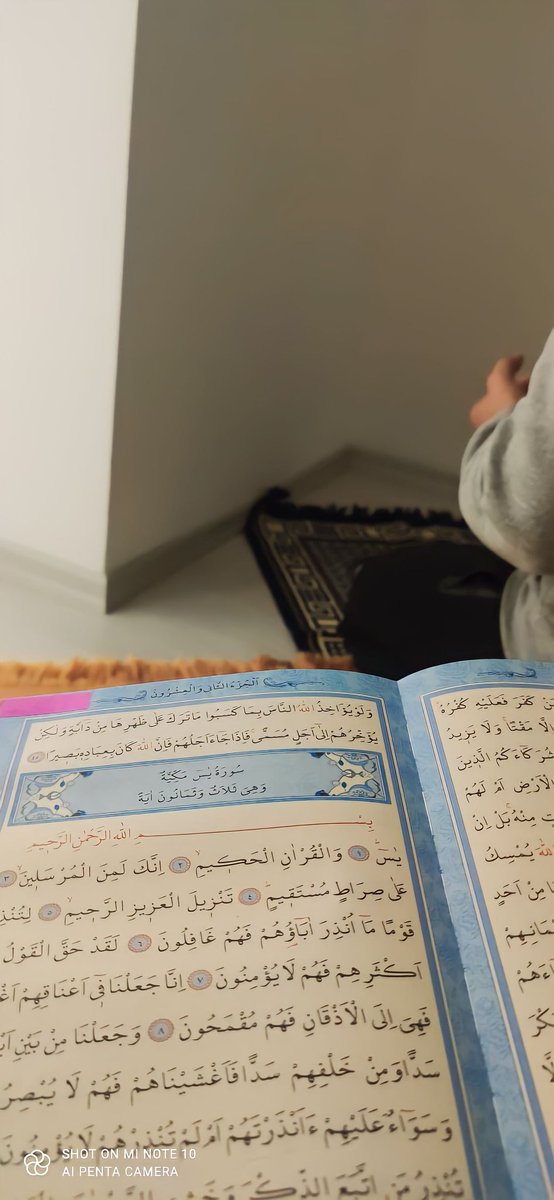 اَلْجُزْءُ الثَّانِي وَالْعِشْرُونَ
وَلَوْ يُؤَاخِذُ اللّٰهُ النَّاسَ بِمَا كَسَبُوا مَا تَرَكَ عَلٰى ظَهْرِهَا مِنْ دَٓابَّةٍ وَلٰكِنْ
يُؤَخِّرُهُمْ اِلٰٓى اَجَلٍ مُسَمًّى فَاِذَا جَٓاءَ اَجَلُهُمْ فَاِنَّ اللّٰهَ كَانَ بِعِبَادِه۪ بَص۪يرًا
سُورَةُ يٰسٓ مَكِّيَّةٌ
وَهِيَ ثَلَاثٌ وَثَمَانُونَ اٰيَةً
بِسْمِ اللّٰهِ الرَّحْمٰنِ الرَّح۪يمِ
يٰسٓ ﴿١﴾ وَالْقُرْاٰنِ الْحَك۪يمِ ﴿٢﴾ اِنَّكَ لَمِنَ الْمُرْسَل۪ينَ ﴿٣﴾
عَلٰى صِرَاطٍ مُسْتَق۪يمٍ ﴿٤﴾ تَنْز۪يلَ الْعَز۪يزِ الرَّح۪يمِ ﴿٥﴾
قَوْمًا مَٓا اُنْذِرَ اٰبَٓاؤُ۬هُمْ فَهُمْ غَافِلُونَ ﴿٦﴾ لَقَدْ حَقَّ الْقَوْلُ
اَكْثَرِهِمْ فَهُمْ لَا يُؤْمِنُونَ ﴿٧﴾ اِنَّا جَعَلْنَا ف۪ٓي اَعْنَاقِهِمْ
فَهِيَ اِلَى الْاَذْقَانِ فَهُمْ مُقْمَحُونَ ﴿٨﴾ وَجَعَلْنَا مِنْ بَيْنِ
سَدًّا وَمِنْ خَلْفِهِمْ سَدًّا فَاَغْشَيْنَاهُمْ فَهُمْ لَا
وَسَوَٓاءٌ عَلَيْهِمْ ءَاَنْذَرْتَهُمْ اَمْ لَمْ تُنْذِرْهُمْ لَا يُؤْمِنُونَ
تُنْذِرُ مَنِ اتَّبَعَ الذِّكْرَ وَخَشِيَ
كَفَرَ فَعَلَيْهِ كُفْرُهُ
اِلَّا مَقْتًا وَلَا يَز۪يدُ
شُرَكَٓاءَكُمُ الَّذ۪ينَ
الْاَرْضِ اَمْ لَهُمْ
مِنْهُ بَلْ اِنْ
اللّٰهَ يُمْسِكُ
مِنْ اَحَدٍ
SHOT ON MI NOTE 10
AI PENTA CAMERA